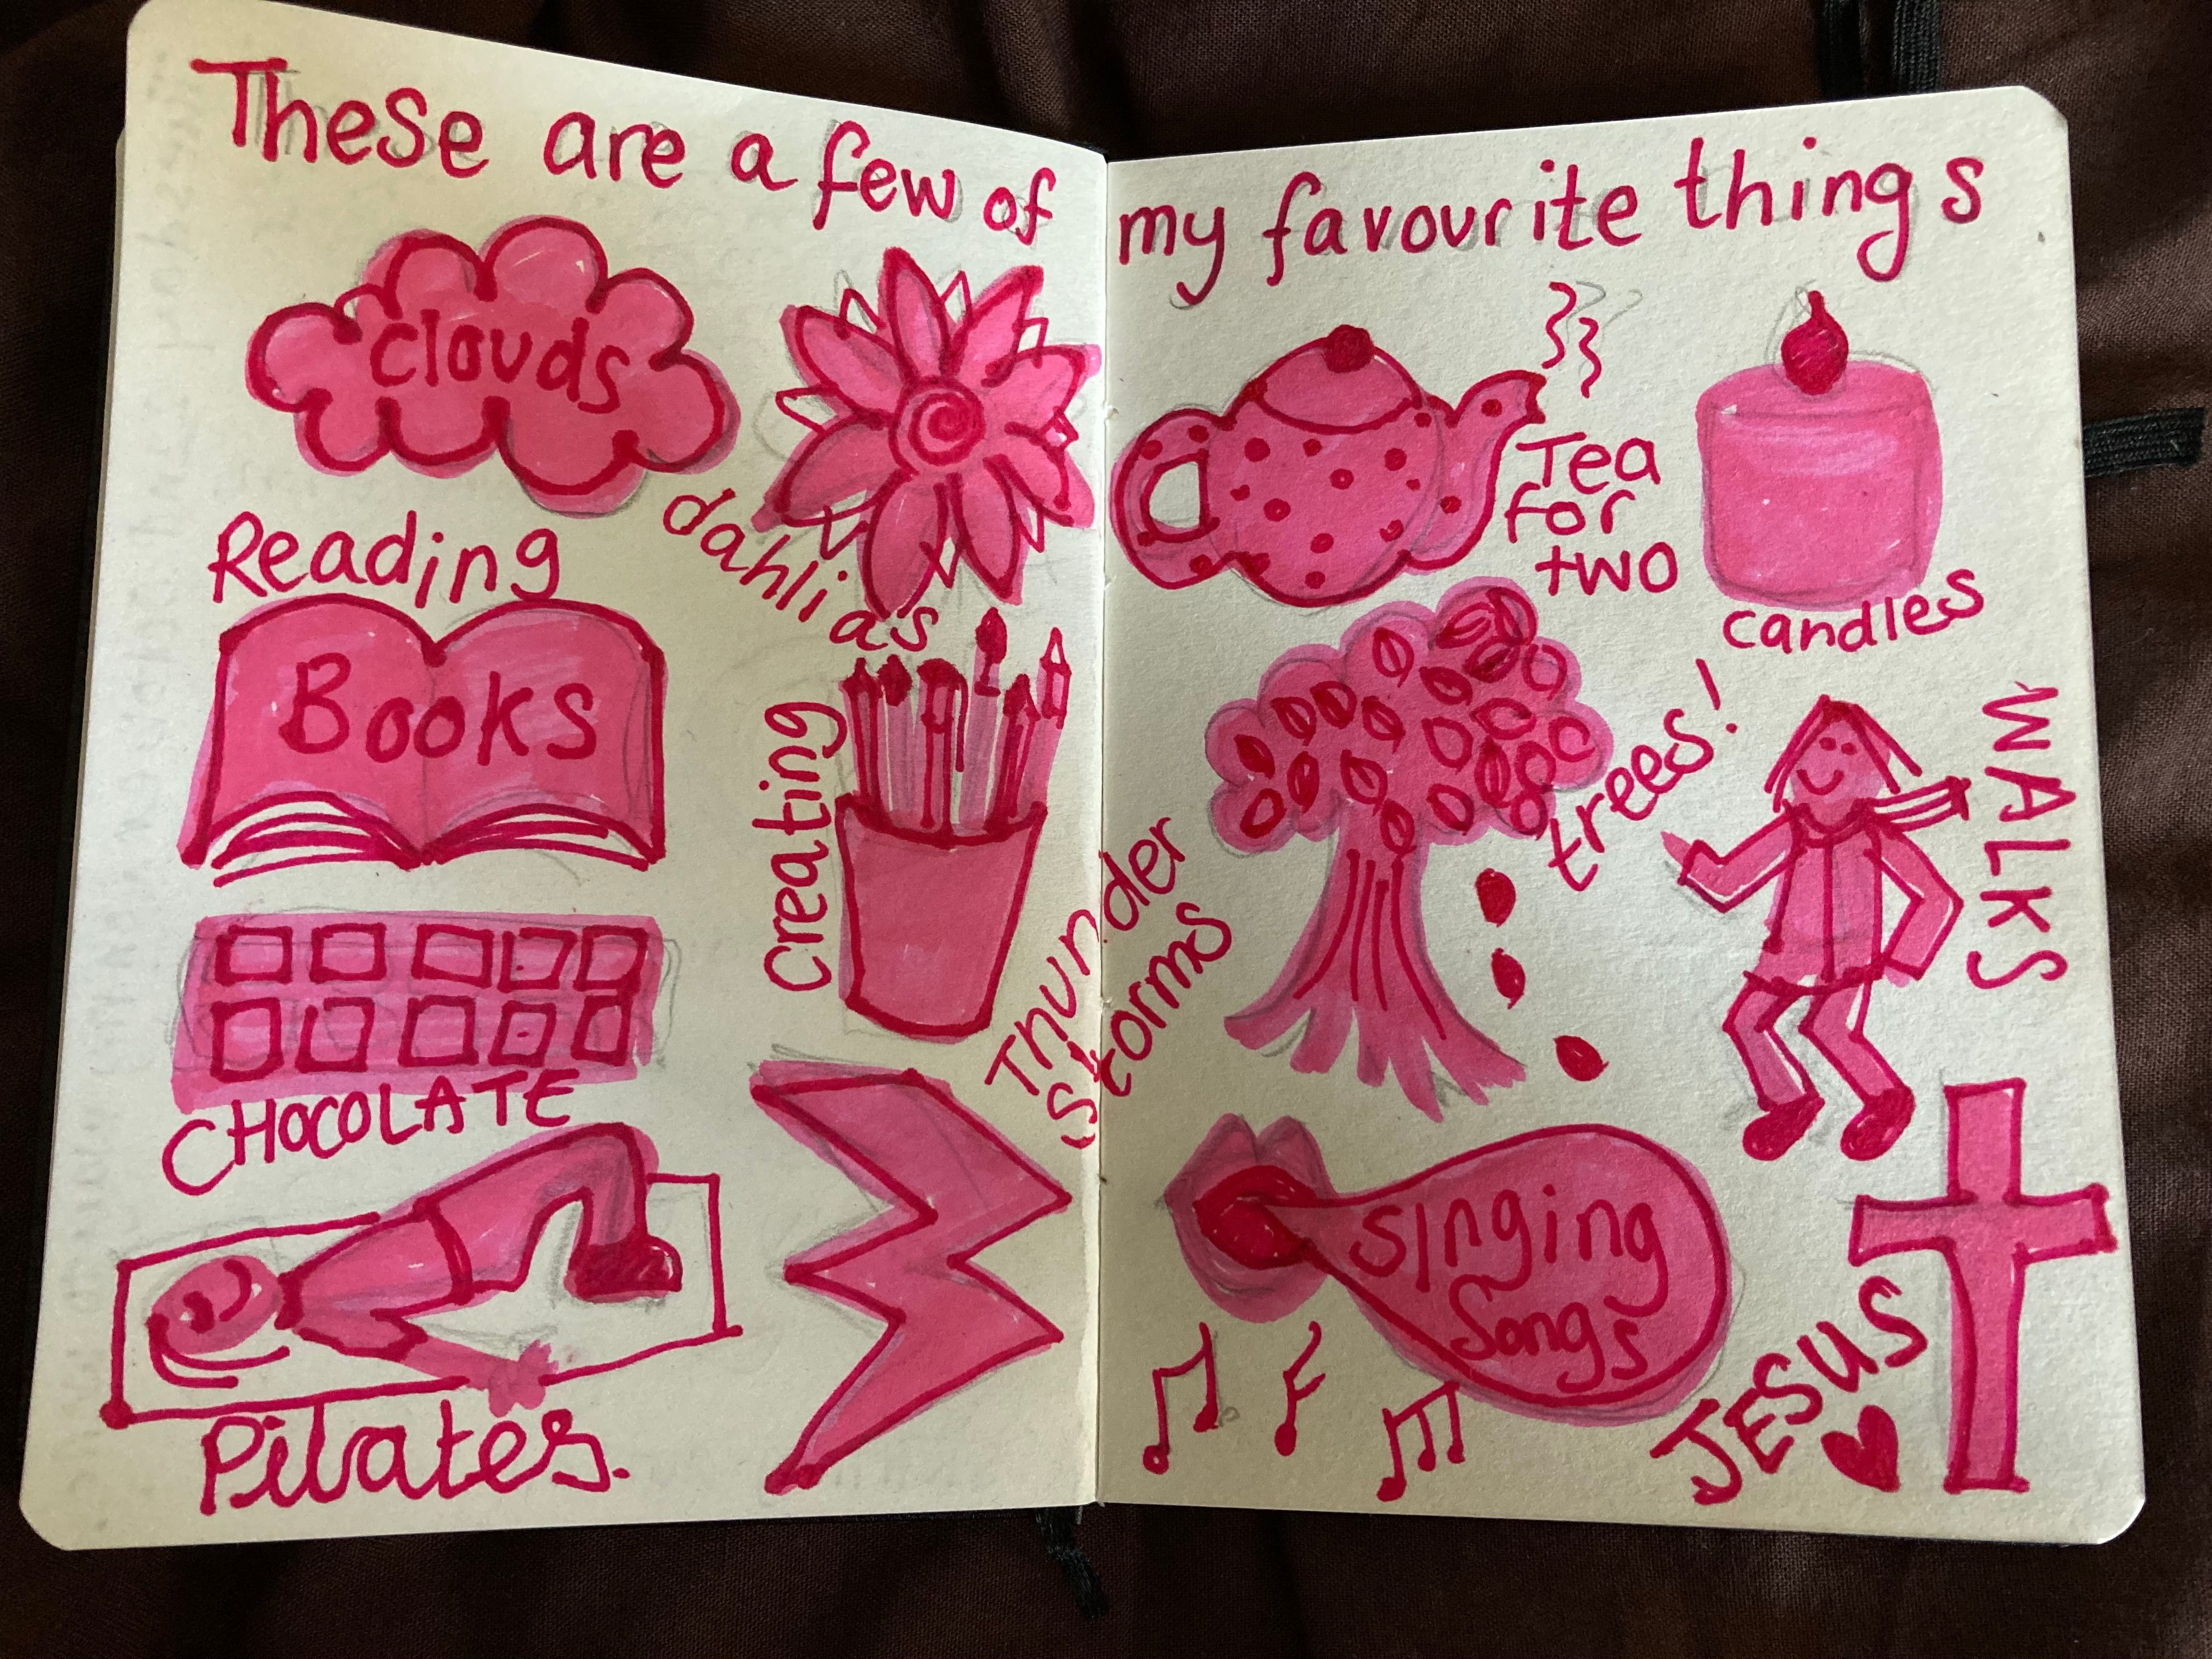 These are a few of my favourite things
clouds
dahlias
Reading
Books
Creating
CHOCOLATE
Pilates.
Thunder
storms
Tea
for
two
candles
trees!
WALKS
Singing
Songs
JESUS